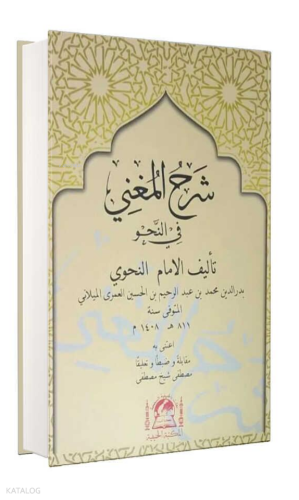 شَرْحُ المُغْنِي
فِي النَّحْوِ
تأليف الامام النحوي
بدرالدين محمد بن عبد الرحيم بن الحسين العمرى الميلاني
المتوفى سنة
٨١١ هـ ١٤٠٨ م
اعتنى به
مقابلة و ضبطا و تعليقا
مصطفى شيخ مصطفى
KATALOG